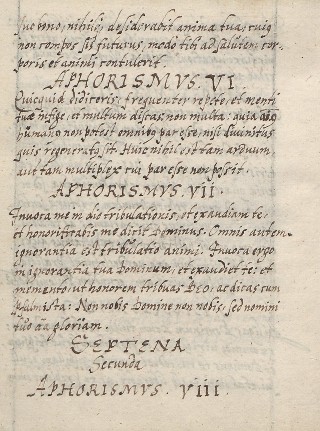 suo bono, nihilq; desideradit anima tua, cuiq
non compos sis futurus, modo tibi ad salutem cor,
poris et animi contulerit.
APHORISMVS. VI
Quicquid didiceris, frequenter repete, et menti
tuæ infige, et multum discas non multa, quia
humano non potest omnino par esse, nisi divinitus
quis regeneratus sit. Huic nihil est tam arduum,
aut tam multiplex cui par esse non possit.
APHORISMVS. VII.
Invoca me in die tribulationis, et exaudiam te,
et honorificabis me dicit Dominus. Omnis autem
ignorantia est tribulatio animi. Invoca ergo
in ignorantia tua Dominum, et exaudiet te: et
memento, ut honorem tribuas DEO, ac dicas cum
psalmista: Non nobis Domine non nobis, sed nomini
tuo da gloriam.
SEPTENA
Secunda
APHORISMVS. VIII.